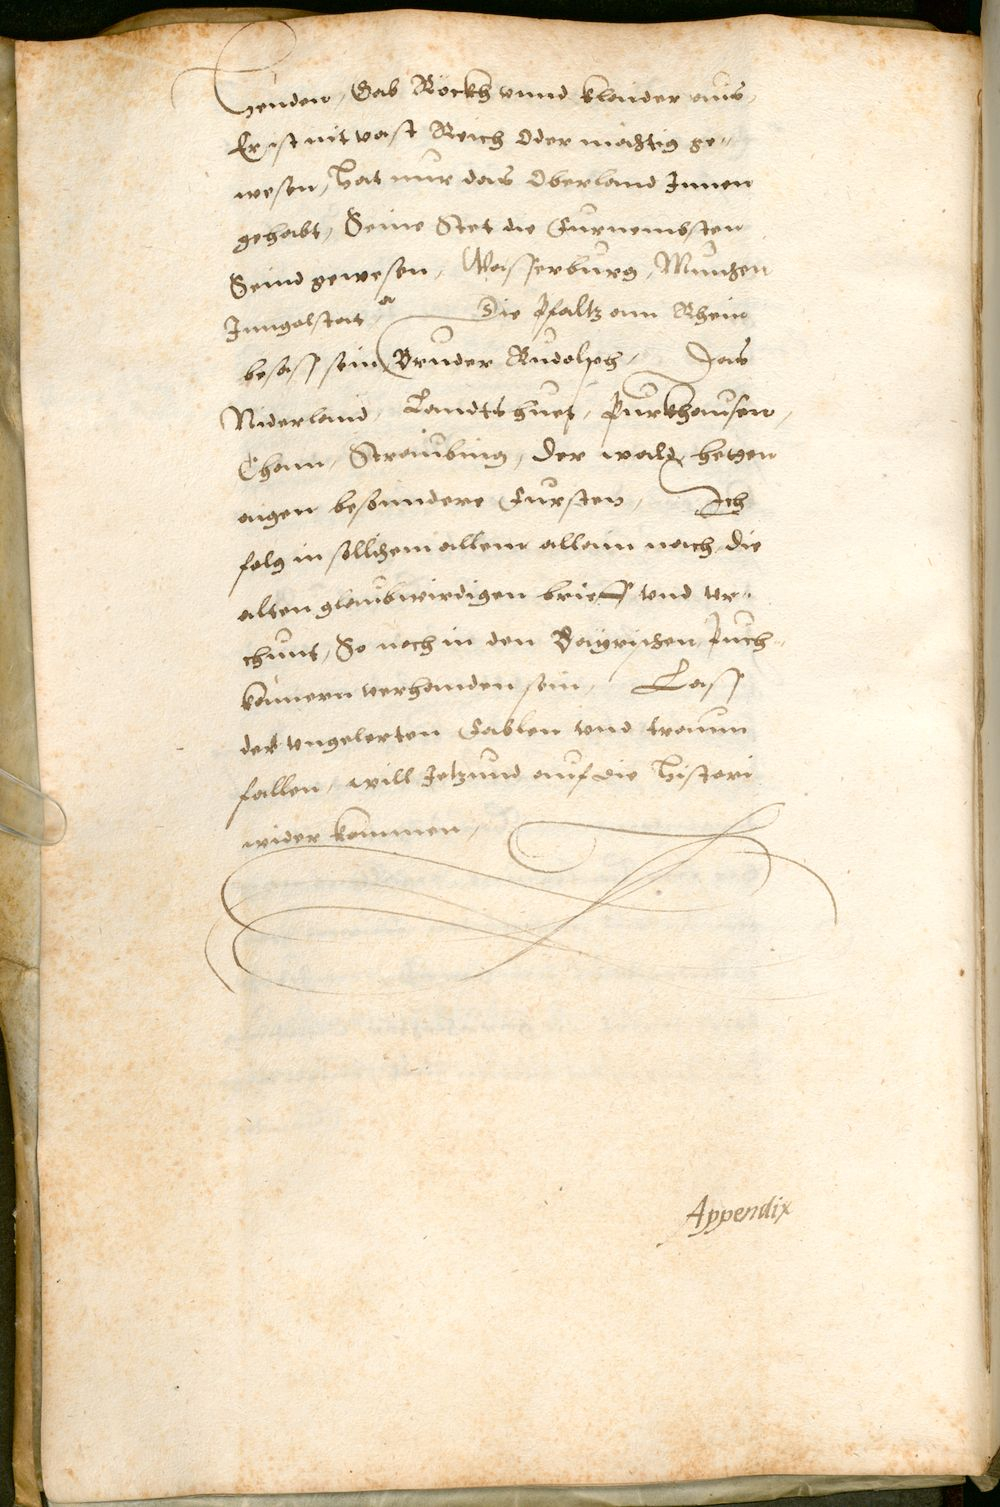 Henden, Gab Röckh vnnd klaider aus,
Er ist nit vast Reich Oder mächtig ge„
wesen, Hat nur das Oberland Innen
gehabt, Seine Stet die Furnembsten
Seind gewesen, Wasserburg, München
Inngolstat, Die Pfaltz am Rhein
besass sein Bruder Rudolph, Das
Niderland, Landtshuet, Purkhausen,
Cham, Straubing, Der wald, hetten
aigen besundere Fursten, Ich
folg in sollichem allem allain nach, die
alten glaubwirdigen brieff vnd vr„
chunt, So noch in den Bayrischen Puech„
kamern verhanden sein, Lass
der vngelerten Fablen vnd traum
fallen, will Jetzund auf die Histori
wider kommen,
Appendix